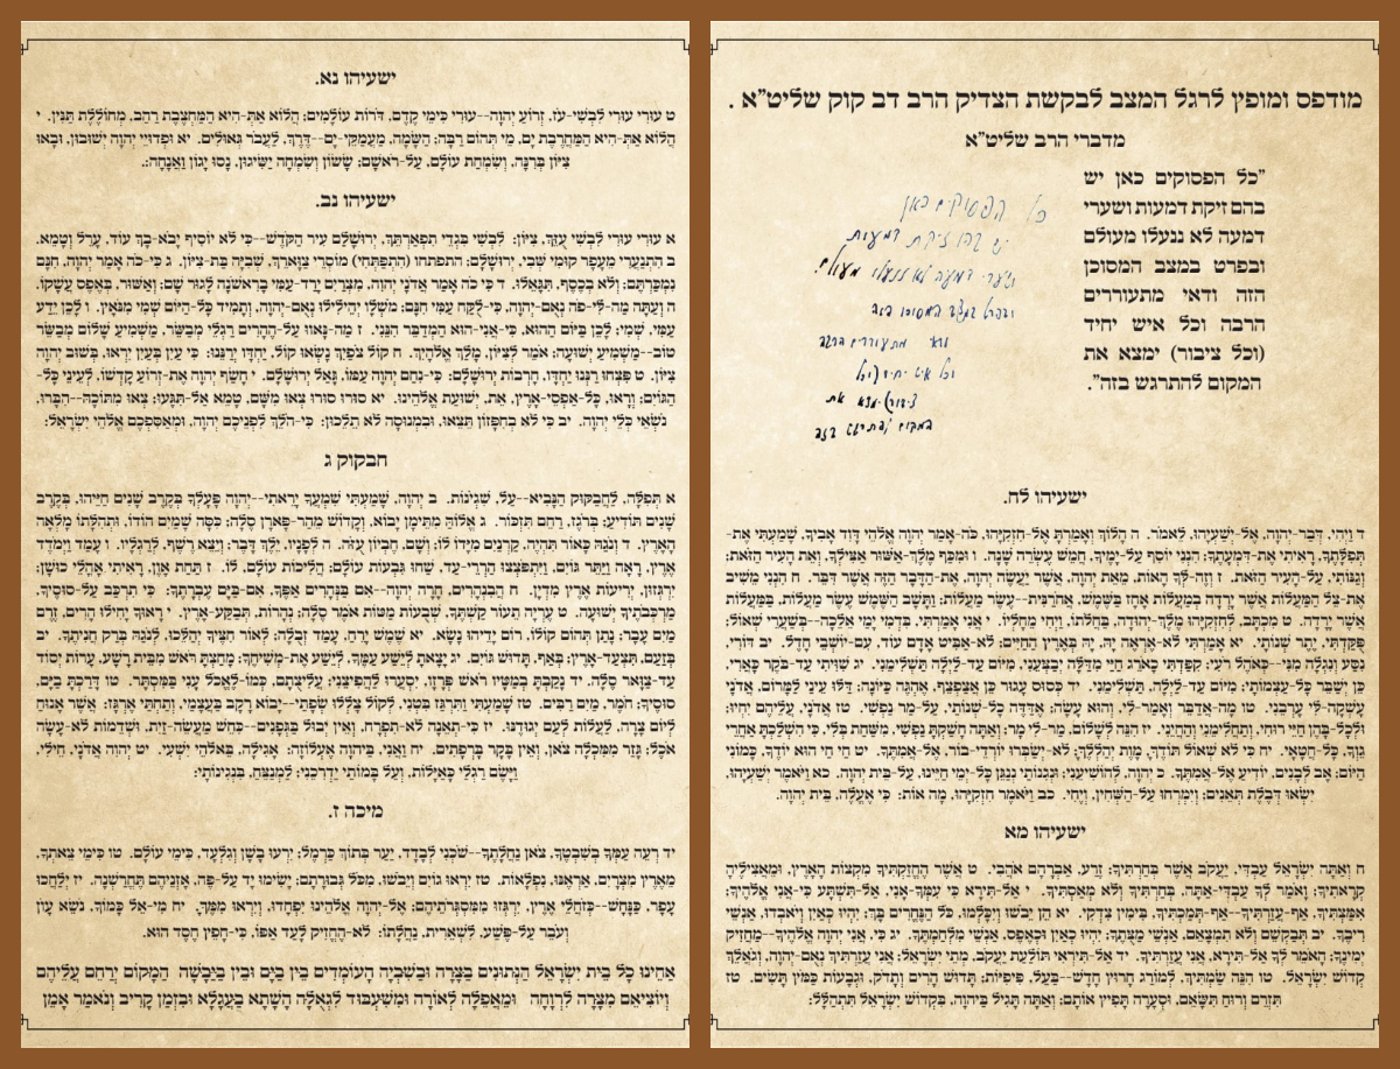 מודפס ומופץ לרגל המצב לבקשת הצדיק הרב דב קוק שליט"א .
מדברי הרב שליט"א
"כל הפסוקים כאן יש
בהם זיקת דמעות ושערי
דמעה לא ננעלו מעולם
ובפרט במצב המסוכן
הזה ודאי מתעוררים
הרבה וכל איש יחיד
(וכל ציבור) ימצא את
המקום להתרגש בזה".
כל הפסוקים כאן
יש בהם זיקת דמעות
ושערי דמעה לא ננעלו מעולם.
ובפרט במצב המסוכן הזה
ודאי מתעוררים הרבה
וכל איש יחיד (וכל
ציבור) ימצא את
המקום להתרגש בזה
ישעיהו לח.
ד וַיְהִי, דְּבַר-יְהוָה, אֶל-יְשַׁעְיָהוּ, לֵאמֹר. ה הָלוֹךְ וְאָמַרְתָּ אֶל-חִזְקִיָּהוּ, כֹּה-אָמַר יְהוָה אֱלֹהֵי דָּוִד אָבִיךָ, שָׁמַעְתִּי אֶת-
תְּפִלָּתֶךָ, רָאִיתִי אֶת-דִּמְעָתֶךָ; הִנְנִי יוֹסִף עַל-יָמֶיךָ, חֲמֵשׁ עֶשְׂרֵה שָׁנָה. ו וּמִכַּף מֶלֶךְ-אַשּׁוּר אַצִּילְךָ, וְאֵת הָעִיר הַזֹּאת;
וְגַנּוֹתִי, עַל-הָעִיר הַזֹּאת. ז וְזֶה-לְּךָ הָאוֹת, מֵאֵת יְהוָה, אֲשֶׁר יַעֲשֶׂה יְהוָה, אֶת-הַדָּבָר הַזֶּה אֲשֶׁר דִּבֵּר. ח הִנְנִי מֵשִׁיב
אֶת-צֵל הַמַּעֲלוֹת אֲשֶׁר יָרְדָה בְמַעֲלוֹת אָחָז בַּשֶּׁמֶשׁ, אֲחֹרַנִּית--עֶשֶׂר מַעֲלוֹת; וַתָּשָׁב הַשֶּׁמֶשׁ עֶשֶׂר מַעֲלוֹת, בַּמַּעֲלוֹת
אֲשֶׁר יָרָדָה. ט מִכְתָּב, לְחִזְקִיָּהוּ מֶלֶךְ-יְהוּדָה, בַּחֲלֹתוֹ, וַיְחִי מֵחָלְיוֹ. י אֲנִי אָמַרְתִּי, בִּדְמִי יָמַי אֵלֵכָה--בְּשַׁעֲרֵי שְׁאוֹל;
פֻּקַּדְתִּי, יֶתֶר שְׁנוֹתָי. יא אָמַרְתִּי לֹא-אֶרְאֶה יָהּ, יָהּ בְּאֶרֶץ הַחַיִּים; לֹא-אַבִּיט אָדָם עוֹד, עִם-יוֹשְׁבֵי חָדֶל. יב דּוֹרִי,
נִסַּע וְנִגְלָה מִנִּי--כְּאֹהֶל רֹעִי; קִפַּדְתִּי כָאֹרֵג חַיַּי מִדַּלָּה יְבַצְּעֵנִי, מִיּוֹם עַד-לַיְלָה תַּשְׁלִימֵנִי. יג שִׁוִּיתִי עַד-בֹּקֶר כָּאֲרִי,
כֵּן יְשַׁבֵּר כָּל-עַצְמוֹתָי; מִיּוֹם עַד-לַיְלָה, תַּשְׁלִימֵנִי. יד כְּסוּס עָגוּר כֵּן אֲצַפְצֵף, אֶהְגֶּה כַּיּוֹנָה; דַּלּוּ עֵינַי לַמָּרוֹם, אֲדֹנָי
עָשְׁקָה-לִּי עָרְבֵנִי. טו מָה-אֲדַבֵּר וְאָמַר-לִי, וְהוּא עָשָׂה; אֶדַּדֶּה כָל-שְׁנוֹתַי, עַל-מַר נַפְשִׁי. טז אֲדֹנָי, עֲלֵיהֶם יִחְיוּ;
וּלְכָל-בָּהֶן חַיֵּי רוּחִי, וְתַחֲלִימֵנִי וְהַחֲיֵנִי. יז הִנֵּה לְשָׁלוֹם, מַר-לִי מָר; וְאַתָּה חָשַׁקְתָּ נַפְשִׁי, מִשַּׁחַת בְּלִי, כִּי הִשְׁלַכְתָּ אַחֲרֵי
גֵוְךָ, כָּל-חֲטָאָי. יח כִּי לֹא שְׁאוֹל תּוֹדֶךָּ, מָוֶת יְהַלְלֶךָּ; לֹא-יְשַׂבְּרוּ יוֹרְדֵי-בוֹר, אֶל-אֲמִתֶּךָ. יט חַי חַי הוּא יוֹדֶךָ, כָּמוֹנִי
הַיּוֹם; אָב לְבָנִים, יוֹדִיעַ אֶל-אֲמִתֶּךָ. כ יְהוָה, לְהוֹשִׁיעֵנִי; וּנְגִנוֹתַי נְנַגֵּן כָּל-יְמֵי חַיֵּינוּ, עַל-בֵּית יְהוָה. כא וַיֹּאמֶר יְשַׁעְיָהוּ,
יִשְׂאוּ דְּבֶלֶת תְּאֵנִים; וְיִמְרְחוּ עַל-הַשְּׁחִין, וְיֶחִי. כב וַיֹּאמֶר חִזְקִיָּהוּ, מָה אוֹת: כִּי אֶעֱלֶה, בֵּית יְהוָה.
ישעיהו מא
ח וְאַתָּה יִשְׂרָאֵל עַבְדִּי, יַעֲקֹב אֲשֶׁר בְּחַרְתִּיךָ; זֶרַע, אַבְרָהָם אֹהֲבִי. ט אֲשֶׁר הֶחֱזַקְתִּיךָ מִקְצוֹת הָאָרֶץ, וּמֵאֲצִילֶיהָ
קְרָאתִיךָ; וָאֹמַר לְךָ עַבְדִּי-אַתָּה, בְּחַרְתִּיךָ וְלֹא מְאַסְתִּיךָ. י אַל-תִּירָא כִּי עִמְּךָ-אָנִי, אַל-תִּשְׁתָּע כִּי-אֲנִי אֱלֹהֶיךָ;
אִמַּצְתִּיךָ, אַף-עֲזַרְתִּיךָ--אַף-תְּמַכְתִּיךָ, בִּימִין צִדְקִי. יא הֵן יֵבֹשׁוּ וְיִכָּלְמוּ, כֹּל הַנֶּחֱרִים בָּךְ; יִהְיוּ כְאַיִן וְיֹאבְדוּ, אַנְשֵׁי
רִיבֶךָ. יב תְּבַקְשֵׁם וְלֹא תִמְצָאֵם, אַנְשֵׁי מַצֻּתֶךָ; יִהְיוּ כְאַיִן וּכְאֶפֶס, אַנְשֵׁי מִלְחַמְתֶּךָ. יג כִּי, אֲנִי יְהוָה אֱלֹהֶיךָ--מַחֲזִיק
יְמִינֶךָ; הָאֹמֵר לְךָ אַל-תִּירָא, אֲנִי עֲזַרְתִּיךָ. יד אַל-תִּירְאִי תּוֹלַעַת יַעֲקֹב, מְתֵי יִשְׂרָאֵל; אֲנִי עֲזַרְתִּיךְ נְאֻם-יְהוָה, וְגֹאֲלֵךְ
קְדוֹשׁ יִשְׂרָאֵל. טו הִנֵּה שַׂמְתִּיךְ, לְמוֹרַג חָרוּץ חָדָשׁ--בַּעַל, פִּיפִיּוֹת; תָּדוּשׁ הָרִים וְתָדֹק, וּגְבָעוֹת כַּמֹּץ תָּשִׂים. טז
תִּזְרֵם וְרוּחַ תִּשָּׂאֵם, וּסְעָרָה תָּפִיץ אוֹתָם; וְאַתָּה תָּגִיל בַּיהוָה, בִּקְדוֹשׁ יִשְׂרָאֵל תִּתְהַלָּל:
ישעיהו נא.
ט עוּרִי עוּרִי לִבְשִׁי-עֹז, זְרוֹעַ יְהוָה--עוּרִי כִּימֵי קֶדֶם, דֹּרוֹת עוֹלָמִים; הֲלוֹא אַתְּ-הִיא הַמַּחְצֶבֶת רַהַב, מְחוֹלֶלֶת תַּנִּין. י
הֲלוֹא אַתְּ-הִיא הַמַּחֲרֶבֶת יָם, מֵי תְּהוֹם רַבָּה; הַשָּׂמָה, מַעֲמַקֵּי-יָם--דֶּרֶךְ, לַעֲבֹר גְּאוּלִים. יא וּפְדוּיֵי יְהוָה יְשׁוּבוּן, וּבָאוּ
צִיּוֹן בְּרִנָּה, וְשִׂמְחַת עוֹלָם, עַל-רֹאשָׁם; שָׂשׂוֹן וְשִׂמְחָה יַשִּׂיגוּן, נָסוּ יָגוֹן וַאֲנָחָה:.
ישעיהו נב.
א עוּרִי עוּרִי לִבְשִׁי עֻזֵּךְ, צִיּוֹן: לִבְשִׁי בִּגְדֵי תִפְאַרְתֵּךְ, יְרוּשָׁלִַם עִיר הַקֹּדֶשׁ--כִּי לֹא יוֹסִיף יָבֹא-בָךְ עוֹד, עָרֵל וְטָמֵא.
ב הִתְנַעֲרִי מֵעָפָר קוּמִי שְּׁבִי, יְרוּשָׁלִָם; התפתחו (הִתְפַּתְּחִי) מוֹסְרֵי צַוָּארֵךְ, שְׁבִיָּה בַּת-צִיּוֹן. ג כִּי-כֹה אָמַר יְהוָה, חִנָּם
נִמְכַּרְתֶּם; וְלֹא בְכֶסֶף, תִּגָּאֵלוּ. ד כִּי כֹה אָמַר אֲדֹנָי יְהוִה, מִצְרַיִם יָרַד-עַמִּי בָרִאשֹׁנָה לָגוּר שָׁם; וְאַשּׁוּר, בְּאֶפֶס עֲשָׁקוֹ.
ה וְעַתָּה מַה-לִּי-פֹה נְאֻם-יְהוָה, כִּי-לֻקַּח עַמִּי חִנָּם; מֹשְׁלָו יְהֵילִילוּ נְאֻם-יְהוָה, וְתָמִיד כָּל-הַיּוֹם שְׁמִי מִנֹּאָץ. ו לָכֵן יֵדַע
עַמִּי, שְׁמִי; לָכֵן בַּיּוֹם הַהוּא, כִּי-אֲנִי-הוּא הַמְדַבֵּר הִנֵּנִי. ז מַה-נָּאווּ עַל-הֶהָרִים רַגְלֵי מְבַשֵּׂר, מַשְׁמִיעַ שָׁלוֹם מְבַשֵּׂר
טוֹב--מַשְׁמִיעַ יְשׁוּעָה; אֹמֵר לְצִיּוֹן, מָלַךְ אֱלֹהָיִךְ. ח קוֹל צֹפַיִךְ נָשְׂאוּ קוֹל, יַחְדָּו יְרַנֵּנוּ: כִּי עַיִן בְּעַיִן יִרְאוּ, בְּשׁוּב יְהוָה
צִיּוֹן. ט פִּצְחוּ רַנְּנוּ יַחְדָּו, חָרְבוֹת יְרוּשָׁלִָם: כִּי-נִחַם יְהוָה עַמּוֹ, גָּאַל יְרוּשָׁלִָם. י חָשַׂף יְהוָה אֶת-זְרוֹעַ קָדְשׁוֹ, לְעֵינֵי כָּל-
הַגּוֹיִם; וְרָאוּ, כָּל-אַפְסֵי-אָרֶץ, אֵת, יְשׁוּעַת אֱלֹהֵינוּ. יא סוּרוּ סוּרוּ צְאוּ מִשָּׁם, טָמֵא אַל-תִּגָּעוּ; צְאוּ מִתּוֹכָהּ--הִבָּרוּ,
נֹשְׂאֵי כְּלֵי יְהוָה. יב כִּי לֹא בְחִפָּזוֹן תֵּצֵאוּ, וּבִמְנוּסָה לֹא תֵלֵכוּן: כִּי-הֹלֵךְ לִפְנֵיכֶם יְהוָה, וּמְאַסִּפְכֶם אֱלֹהֵי יִשְׂרָאֵל:
חבקוק ג
א תְּפִלָּה, לַחֲבַקּוּק הַנָּבִיא--עַל, שִׁגְיֹנוֹת. ב יְהוָה, שָׁמַעְתִּי שִׁמְעֲךָ יָרֵאתִי--יְהוָה פָּעָלְךָ בְּקֶרֶב שָׁנִים חַיֵּיהוּ, בְּקֶרֶב
שָׁנִים תּוֹדִיעַ; בְּרֹגֶז, רַחֵם תִּזְכּוֹר. ג אֱלוֹהַּ מִתֵּימָן יָבוֹא, וְקָדוֹשׁ מֵהַר-פָּארָן סֶלָה; כִּסָּה שָׁמַיִם הוֹדוֹ, וּתְהִלָּתוֹ מָלְאָה
הָאָרֶץ. ד וְנֹגַהּ כָּאוֹר תִּהְיֶה, קַרְנַיִם מִיָּדוֹ לוֹ; וְשָׁם, חֶבְיוֹן עֻזֹּה. ה לְפָנָיו, יֵלֶךְ דָּבֶר; וְיֵצֵא רֶשֶׁף, לְרַגְלָיו. ו עָמַד וַיְמֹדֶד
אֶרֶץ, רָאָה וַיַּתֵּר גּוֹיִם, וַיִּתְפֹּצְצוּ הַרְרֵי-עַד, שַׁחוּ גִּבְעוֹת עוֹלָם; הֲלִיכוֹת עוֹלָם, לוֹ. ז תַּחַת אָוֶן, רָאִיתִי אָהֳלֵי כוּשָׁן;
יִרְגְּזוּן, יְרִיעוֹת אֶרֶץ מִדְיָן. ח הֲבִנְהָרִים, חָרָה יְהוָה--אִם בַּנְּהָרִים אַפֶּךָ, אִם-בַּיָּם עֶבְרָתֶךָ: כִּי תִרְכַּב עַל-סוּסֶיךָ,
מַרְכְּבֹתֶיךָ יְשׁוּעָה. ט עֶרְיָה תֵעוֹר קַשְׁתֶּךָ, שְׁבֻעוֹת מַטּוֹת אֹמֶר סֶלָה; נְהָרוֹת, תְּבַקַּע-אָרֶץ. י רָאוּךָ יָחִילוּ הָרִים, זֶרֶם
מַיִם עָבָר; נָתַן תְּהוֹם קוֹלוֹ, רוֹם יָדֵיהוּ נָשָׂא. יא שֶׁמֶשׁ יָרֵחַ, עָמַד זְבֻלָה; לְאוֹר חִצֶּיךָ יְהַלֵּכוּ, לְנֹגַהּ בְּרַק חֲנִיתֶךָ. יב
בְּזַעַם, תִּצְעַד-אָרֶץ; בְּאַף, תָּדוּשׁ גּוֹיִם. יג יָצָאתָ לְיֵשַׁע עַמֶּךָ, לְיֵשַׁע אֶת-מְשִׁיחֶךָ; מָחַצְתָּ רֹּאשׁ מִבֵּית רָשָׁע, עָרוֹת יְסוֹד
עַד-צַוָּאר סֶלָה. יד נָקַבְתָּ בְמַטָּיו רֹאשׁ פְּרָזָו, יִסְעֲרוּ לַהֲפִיצֵנִי; עֲלִיצֻתָם, כְּמוֹ-לֶאֱכֹל עָנִי בַּמִּסְתָּר. טו דָּרַכְתָּ בַיָּם,
סוּסֶיךָ; חֹמֶר, מַיִם רַבִּים. טז שָׁמַעְתִּי וַתִּרְגַּז בִּטְנִי, לְקוֹל צָלְלוּ שְׂפָתַי--יָבוֹא רָקָב בַּעֲצָמַי, וְתַחְתַּי אֶרְגָּז: אֲשֶׁר אָנוּחַ
לְיוֹם צָרָה, לַעֲלוֹת לְעַם יְגוּדֶנּוּ. יז כִּי-תְאֵנָה לֹא-תִפְרָח, וְאֵין יְבוּל בַּגְּפָנִים--כִּחֵשׁ מַעֲשֵׂה-זַיִת, וּשְׁדֵמוֹת לֹא-עָשָׂה
אֹכֶל; גָּזַר מִמִּכְלָה צֹאן, וְאֵין בָּקָר בָּרְפָתִים. יח וַאֲנִי, בַּיהוָה אֶעְלוֹזָה; אָגִילָה, בֵּאלֹהֵי יִשְׁעִי. יט יְהוִה אֲדֹנָי, חֵילִי,
וַיָּשֶׂם רַגְלַי כָּאַיָּלוֹת, וְעַל בָּמוֹתַי יַדְרִכֵנִי; לַמְנַצֵּחַ, בִּנְגִינוֹתָי:
מיכה ז.
יד רְעֵה עַמְּךָ בְשִׁבְטֶךָ, צֹאן נַחֲלָתֶךָ--שֹׁכְנִי לְבָדָד, יַעַר בְּתוֹךְ כַּרְמֶל; יִרְעוּ בָשָׁן וְגִלְעָד, כִּימֵי עוֹלָם. טו כִּימֵי צֵאתְךָ,
מֵאֶרֶץ מִצְרָיִם, אַרְאֶנּוּ, נִפְלָאוֹת. טז יִרְאוּ גוֹיִם וְיֵבֹשׁוּ, מִכֹּל גְּבוּרָתָם; יָשִׂימוּ יָד עַל-פֶּה, אָזְנֵיהֶם תֶּחֱרַשְׁנָה. יז יְלַחֲכוּ
עָפָר, כַּנָּחָשׁ--כְּזֹחֲלֵי אֶרֶץ, יִרְגְּזוּ מִמִּסְגְּרֹתֵיהֶם; אֶל-יְהוָה אֱלֹהֵינוּ יִפְחָדוּ, וְיִרְאוּ מִמֶּךָּ. יח מִי-אֵל כָּמוֹךָ, נֹשֵׂא עָוֹן
וְעֹבֵר עַל-פֶּשַׁע, לִשְׁאֵרִית, נַחֲלָתוֹ: לֹא-הֶחֱזִיק לָעַד אַפּוֹ, כִּי-חָפֵץ חֶסֶד הוּא.
אַחֵינוּ כָּל בֵּית יִשְׂרָאֵל הַנְּתוּנִים בַּצָּרָה וּבַשִּׁבְיָה הָעוֹמְדִים בֵּין בַּיָּם וּבֵין בַּיַּבָּשָׁה הַמָּקוֹם יְרַחֵם עֲלֵיהֶם
וְיוֹצִיאֵם מִצָּרָה לִרְוָחָה וּמֵאֲפֵלָה לְאוֹרָה וּמִשִּׁעְבּוּד לִגְאֻלָּה הָשַׁתָּא בַּעֲגָלָא וּבִזְמַן קָרִיב וְנֹאמַר אָמֵן